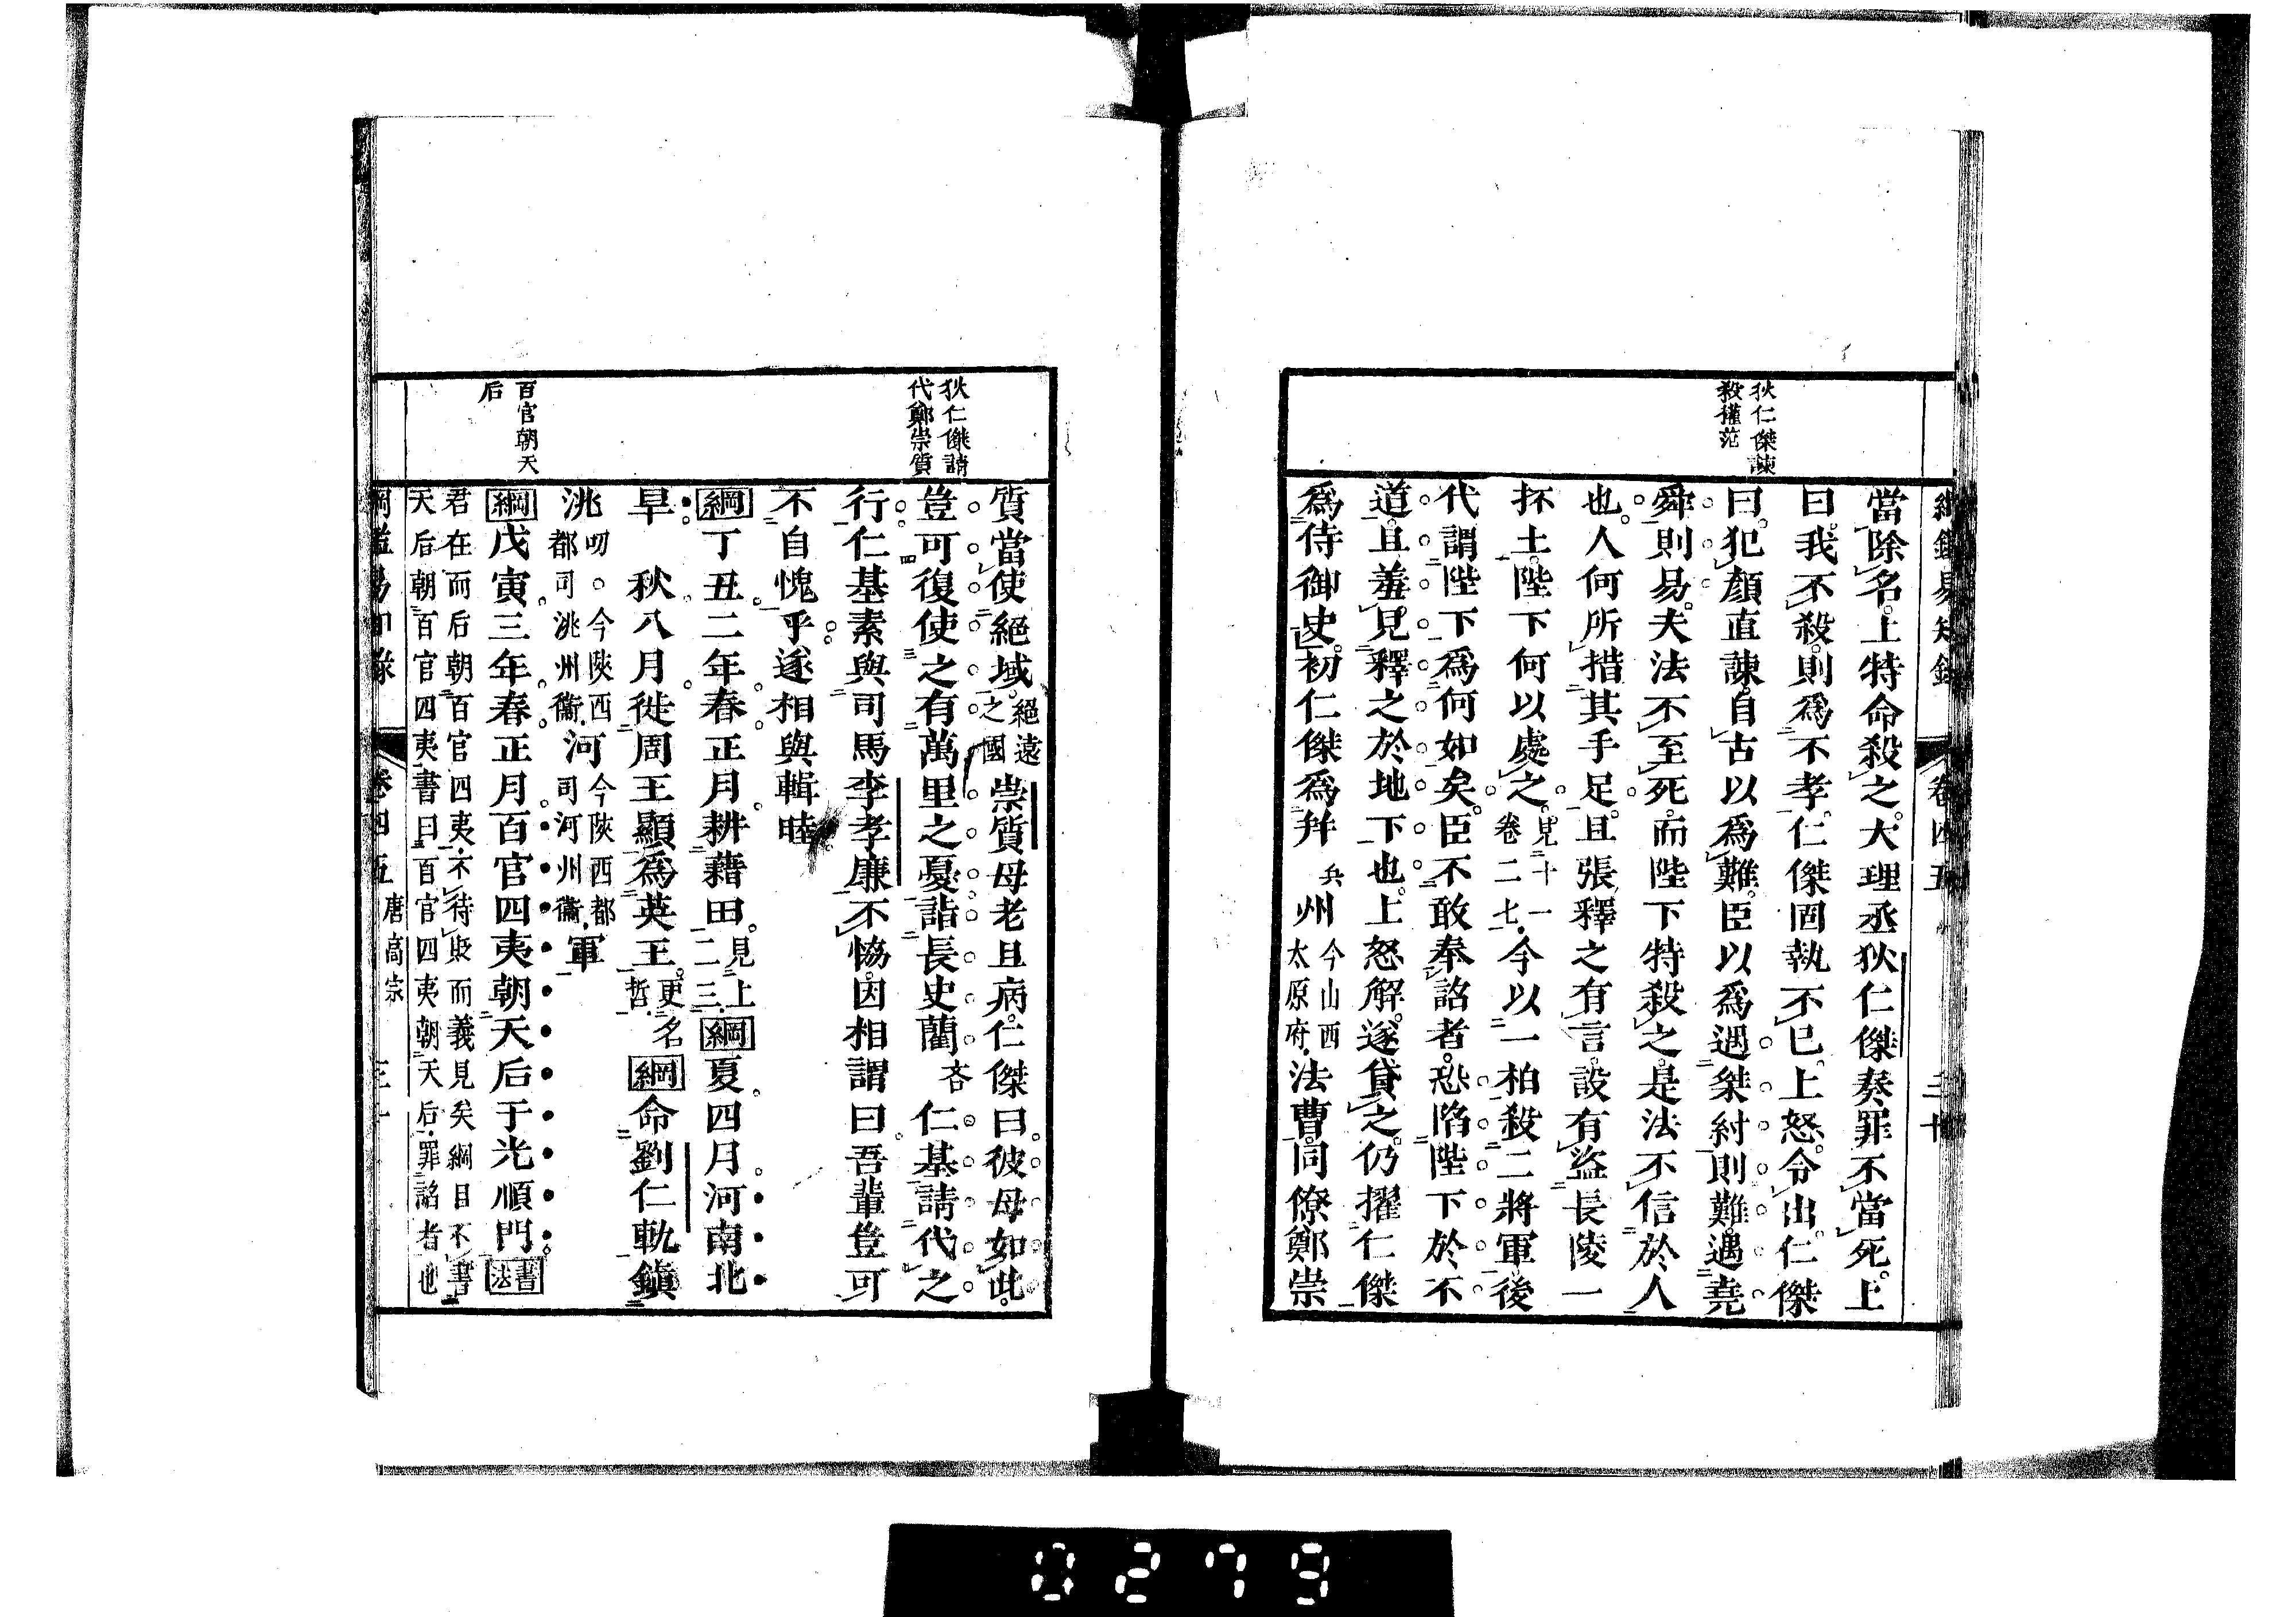 綱鑑易知錄 卷四五 三十
狄仁傑諫
殺權范
當除名。上特命殺之。大理丞狄仁傑奏罪不當死。上
曰。我不殺。則爲不孝。仁傑固執不已。上怒。令出。仁傑
曰。犯顏直諫。自古以爲難。臣以爲遇桀紂則難。遇堯
舜則易。夫法不至死。而陛下特殺之。是法不信於人
也。人何所措其手足。且張釋之有言。設有盜長陵一
抔土。陛下何以處之。見十一
卷二七。今以一柏殺二將軍。後
代謂陛下爲何如矣。臣不敢奉詔者。恐陷陛下於不
道。且羞見釋之於地下也。上怒解。遂貸之。仍擢仁傑
爲侍御史。初仁傑爲幷兵州今山西
太原府。法曹。同僚鄭崇
狄仁傑請
代鄭崇質
質當使絕域。絕遠
之國崇質母老且病。仁傑曰。彼母如此。
豈可復使之有萬里之憂。詣長史藺吝仁基請代之
行。仁基素與司馬李孝廉不恊。因相謂曰。吾輩豈可
不自愧乎。遂相與輯睦
綱丁丑二年。春正月。耕藉田。見上
二三。綱夏四月。河南北
旱 秋八月。徙周王顯爲英王。更名
哲。綱命劉仁軌鎭
洮叨。今陝西
都司洮州衞。河今陝西都
司河州衞。軍
百官朝天
后
綱戊寅三年。春正月。百官四夷朝天后于光順門。書法
君在而后朝百官四夷。不待貶而義見矣綱目不書
天后朝百官四夷書曰百官四夷朝天后。罪諂者也
綱鑑易知錄 卷四五 唐高宗 三十